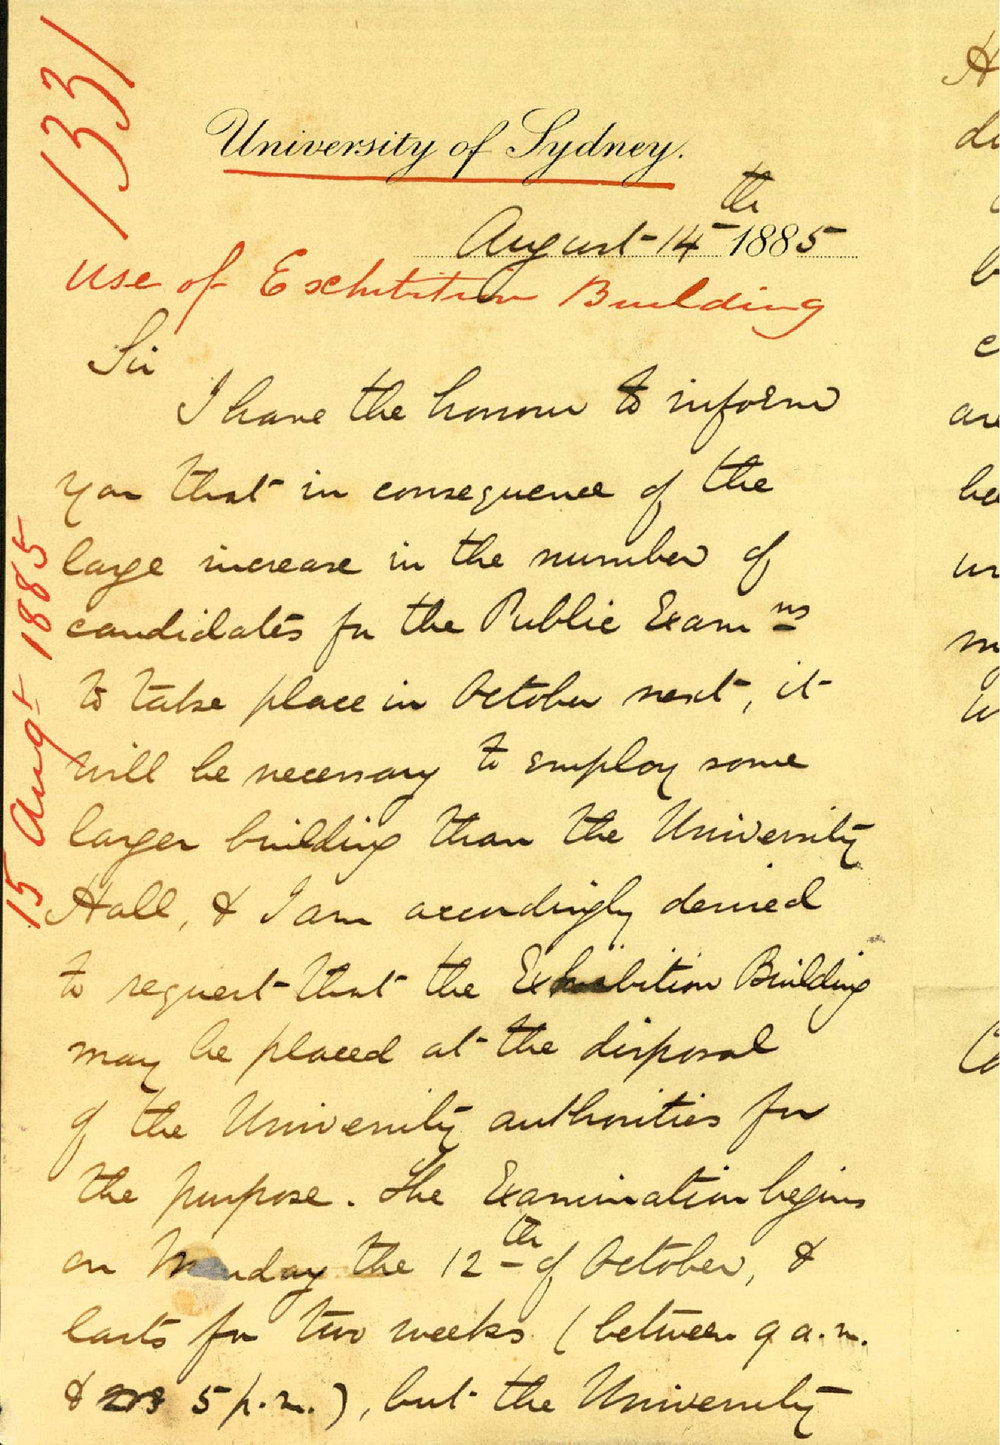 1331
University of Sydney.
August 14th 1885
Use of Exhibition Building
Sir
I have the honour to inform
you that in consequence of the
large increase in the number of
candidates for the Public Examns
to take place in October next, it
will be necessary to employ some
larger building than the University
Hall, & I am accordingly desired
to request that the Exhibition Building
may be placed at the disposal
of the University authorities for
the purpose. The Examination begins
on Monday the 12th of October, &
lasts for two weeks (between 9 a.m.
& 5 p.m.), but the University
15 Augt 1885